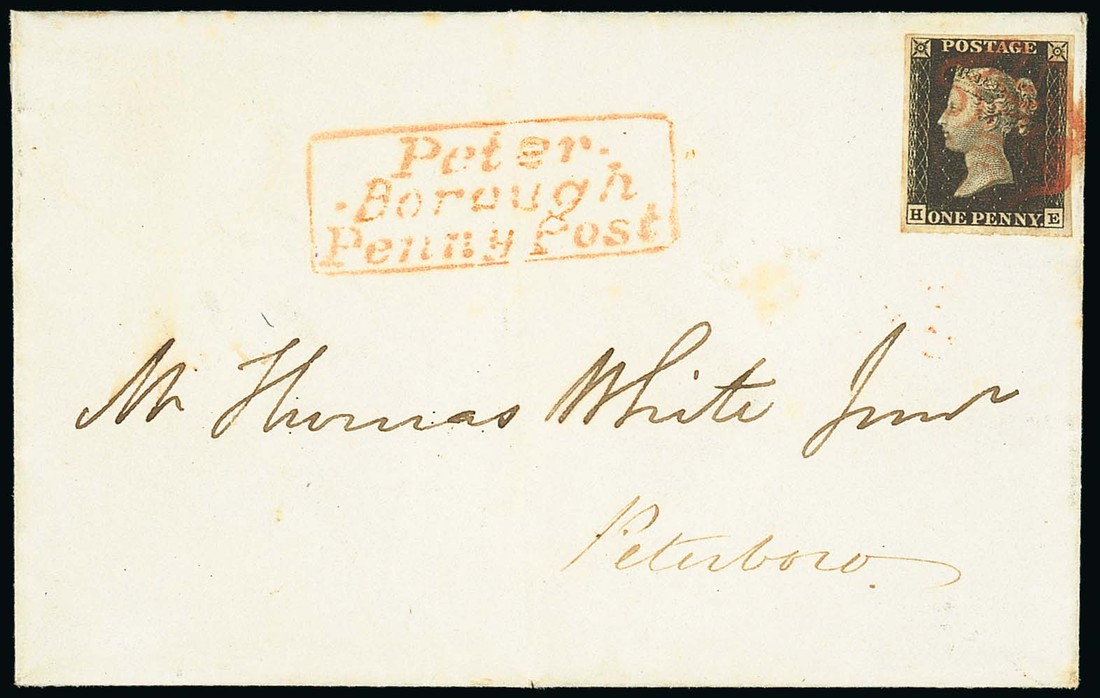 POSTAGE
H ONE PENNY. E
Peter.
.Borough
Penny Post
Mr Thomas White Junr
Peterboro